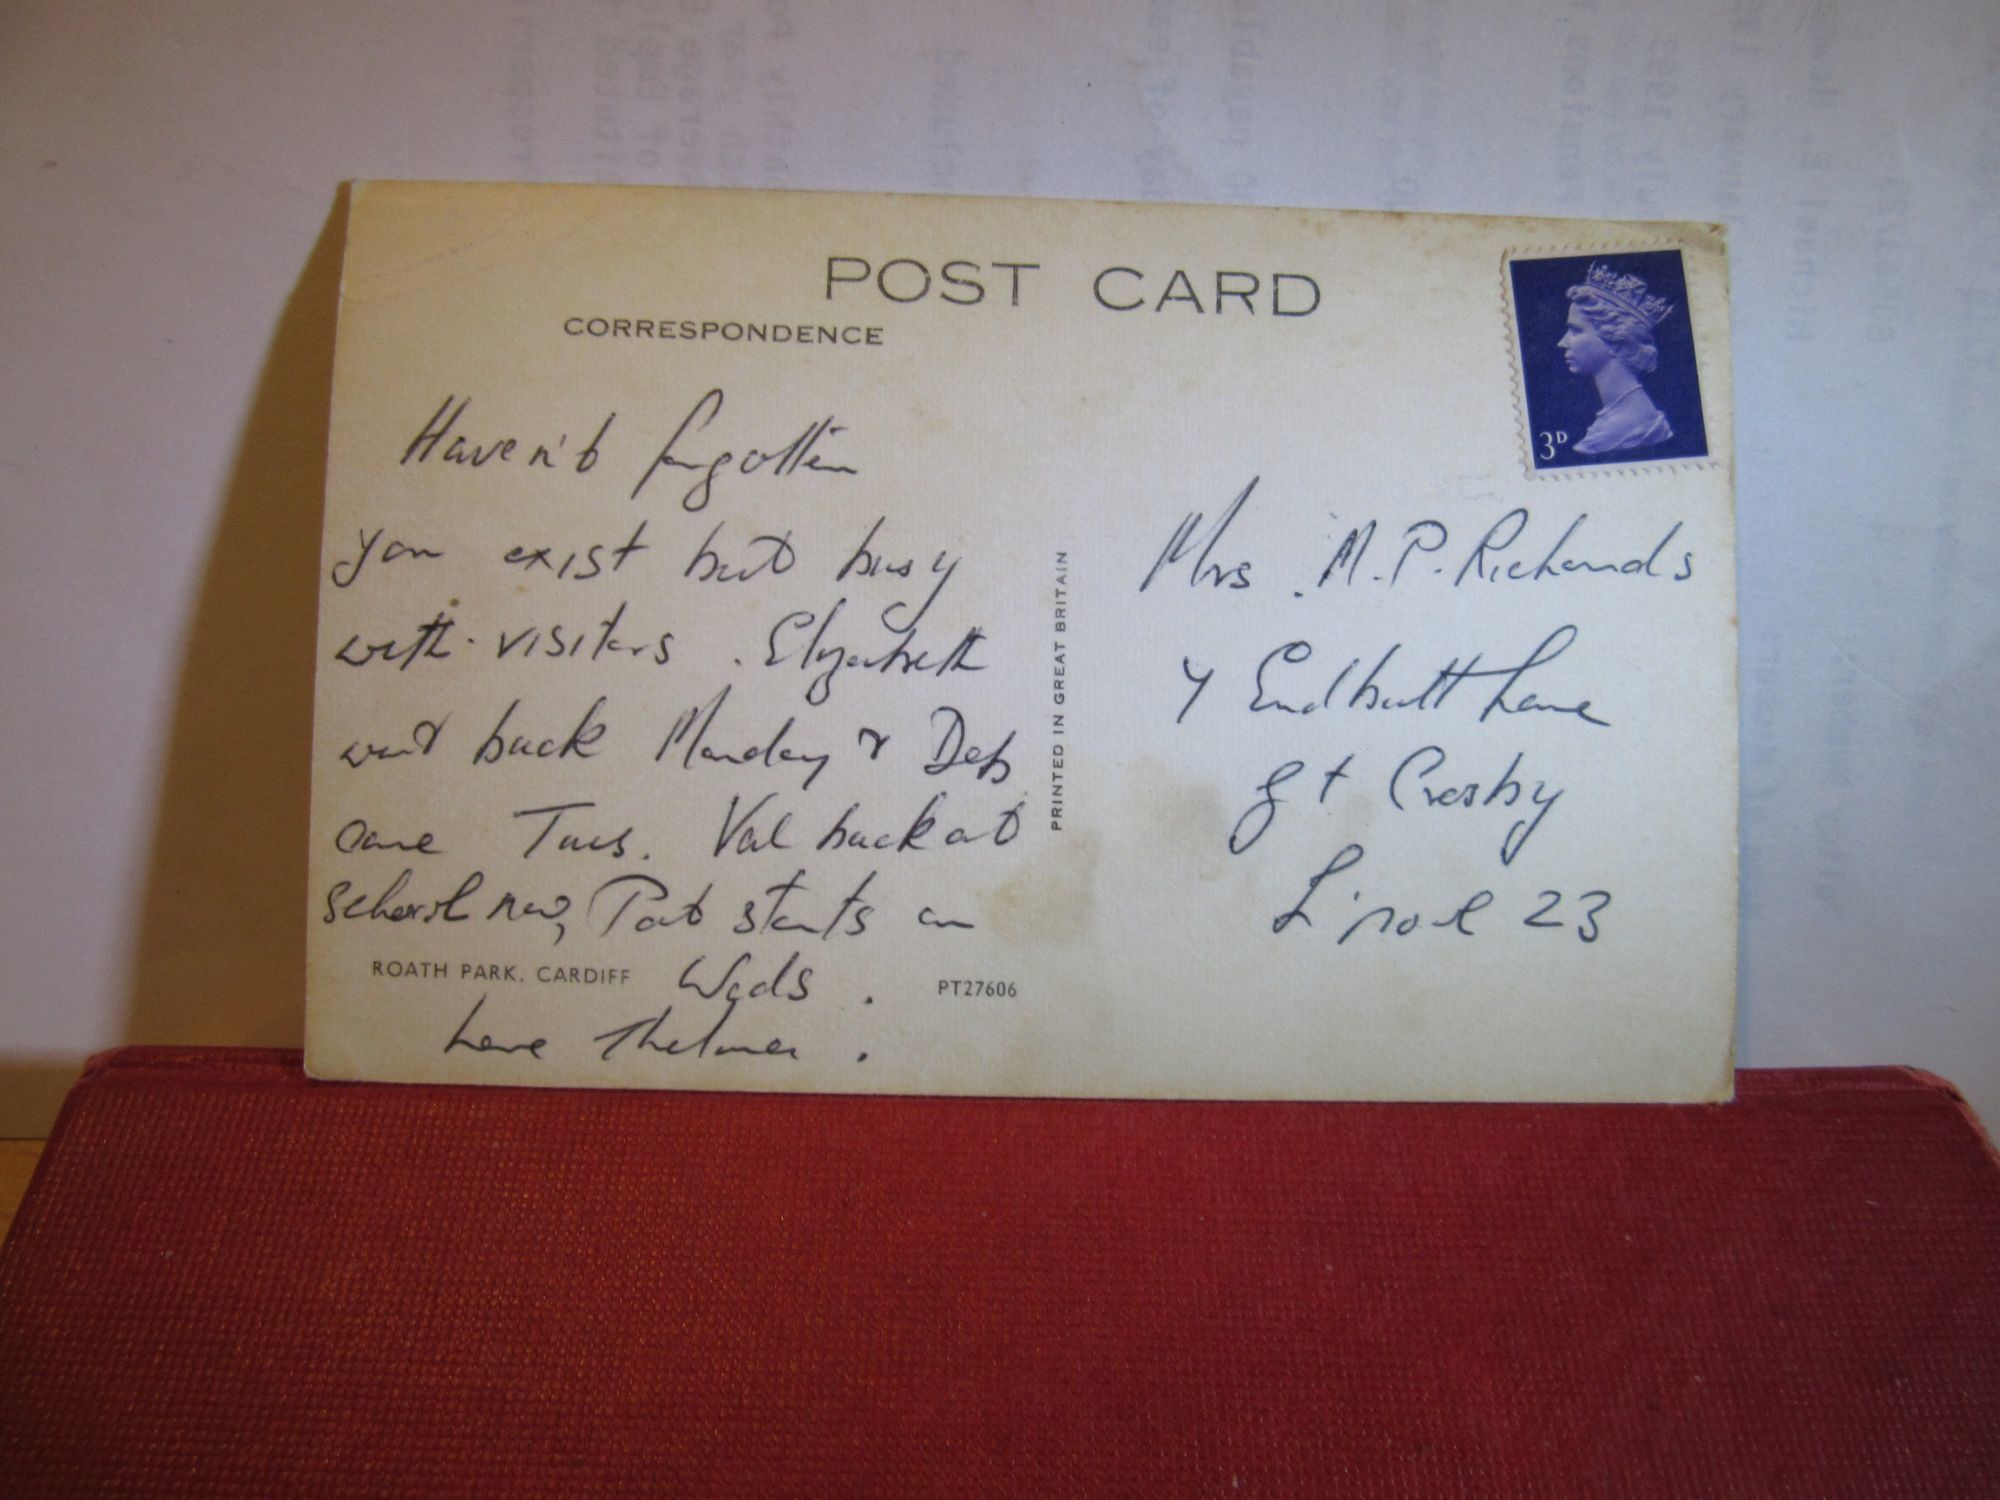 POST CARD
CORRESPONDENCE
3D
Haven't forgotten
you exist but busy
with visitors. Elizabeth
went back Monday & Deb
came Tues. Val back at
school now, Pat starts on
Weds.
love Thelma.
ROATH PARK, CARDIFF
PT27606
PRINTED IN GREAT BRITAIN
Mrs. M. P. Richards
Y Endbutt Lane
Gt Crosby
L'pool 23